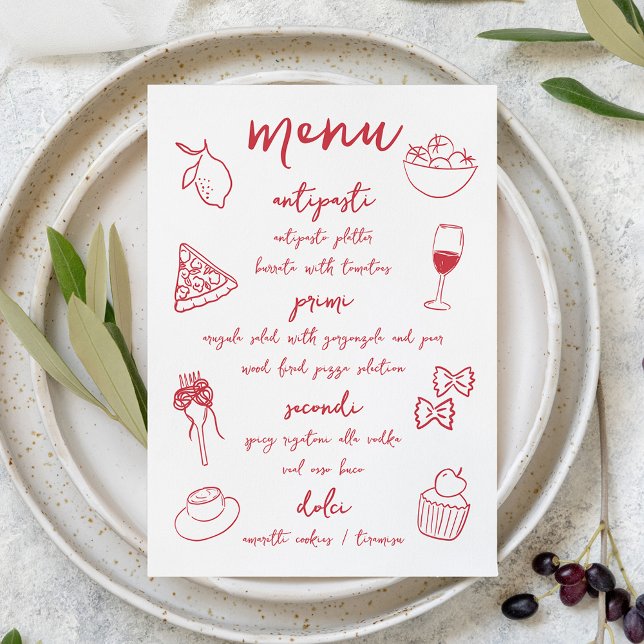 menu
antipasti
antipasto platter
burrata with tomatoes
primi
arugula salad with gorgonzola and pear
wood fired pizza selection
secondi
spicy rigatoni alla vodka
veal osso buco
dolci
amaretti cookies / tiramisu